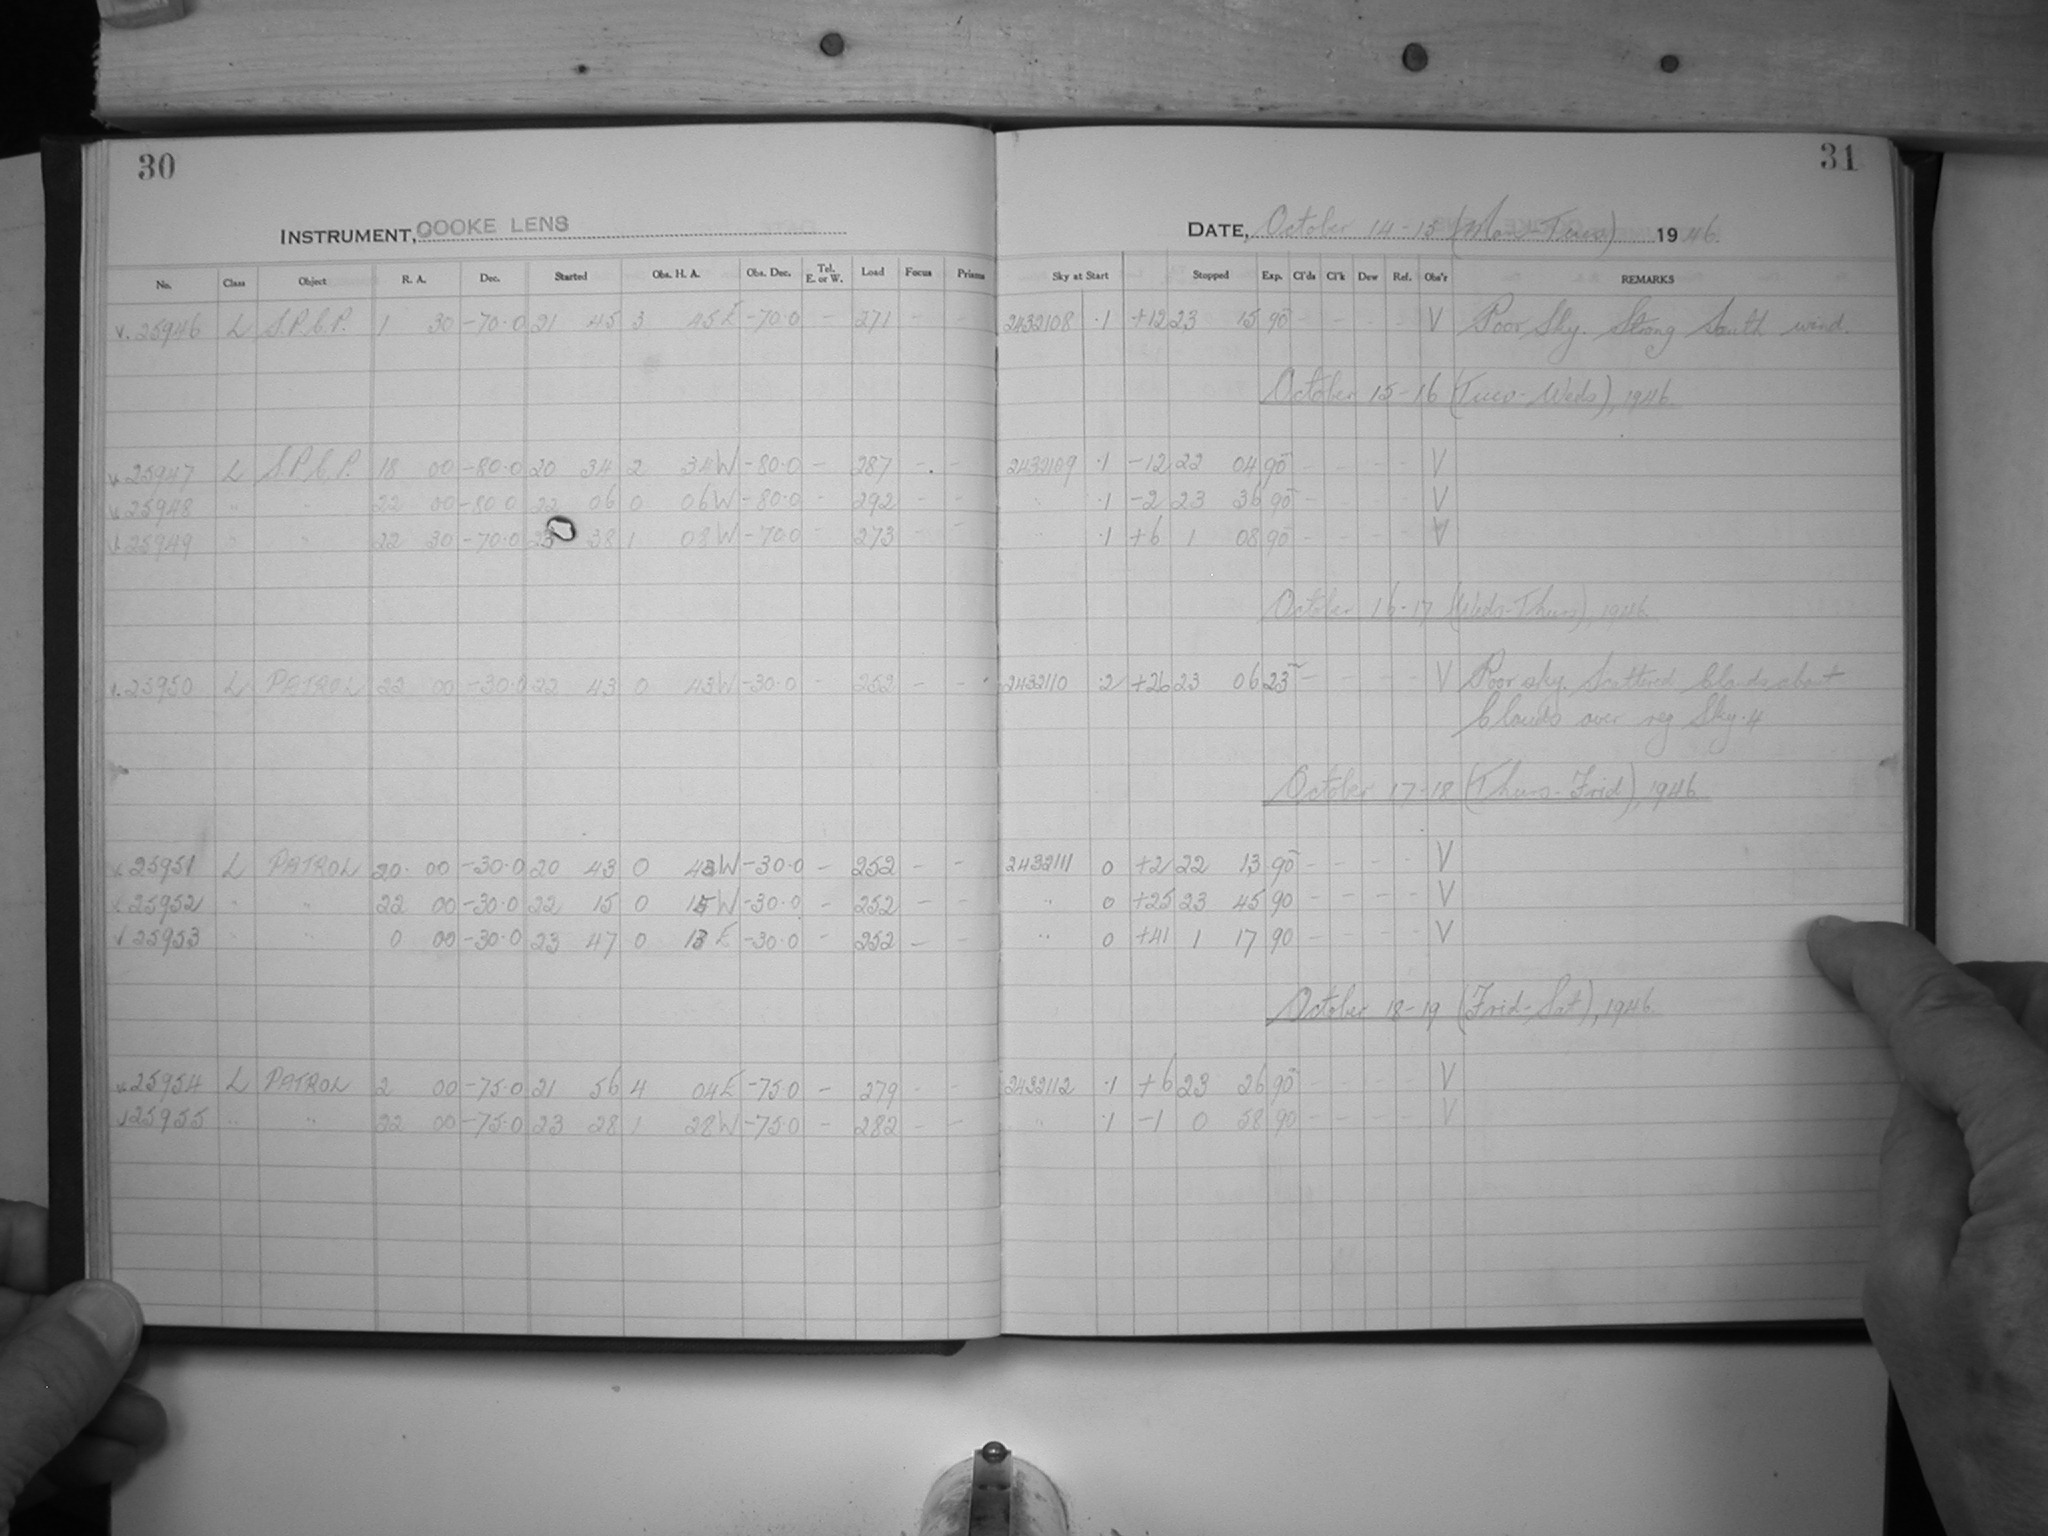 30
31
INSTRUMENT, COOKE LENS
DATE, October 14-15 (Mon-Tues) 1946
No. Class Object R. A. Dec. Started Obs. H. A. Obs. Dec. Tel. E. or W. Load Focus Prisms Sky at Start Stopped Exp. Cl'ds Cl'k Dew Ref. Obs'r REMARKS
v. 25946 L S.P.C.P. 1 30 -70.0 21 45 3 45 E -70.0 - 271 - - 2432108 .1 +12 23 15 90 - - - - V Poor Sky. Strong South wind.
October 15-16 (Tues-Weds), 1946
v 25947 L S.P.C.P. 18 00 -80.0 20 34 2 34 W -80.0 - 287 - - 2432109 .1 -12 22 04 90 - - - - V
v 25948 " " 22 00 -80.0 22 06 0 06 W -80.0 - 292 - - " .1 -2 23 36 90 - - - - V
v 25949 " " 22 30 -70.0 23 38 1 08 W -70.0 - 273 - - " .1 +6 1 08 90 - - - - V
October 16-17 (Weds-Thurs), 1946
v. 25950 L PATROL 22 00 -30.0 22 43 0 43 W -30.0 - 252 - - 2432110 .2 +26 23 06 23 - - - - V Poor sky. Scattered Clouds about
Clouds over reg Sky .4
October 17-18 (Thurs-Frid), 1946
v 25951 L PATROL 20 00 -30.0 20 43 0 43 W -30.0 - 252 - - 2432111 0 +2 22 13 90 - - - - V
v 25952 " " 22 00 -30.0 22 15 0 15 W -30.0 - 252 - - " 0 +25 23 45 90 - - - - V
v 25953 " " 0 00 -30.0 23 47 0 13 E -30.0 - 252 - - " 0 +41 1 17 90 - - - - V
October 18-19 (Frid-Sat), 1946
v 25954 L PATROL 2 00 -75.0 21 56 4 04 E -75.0 - 279 - - 2432112 .1 +6 23 26 90 - - - - V
v 25955 " " 22 00 -75.0 23 28 1 28 W -75.0 - 282 - - " .1 -1 0 58 90 - - - - V